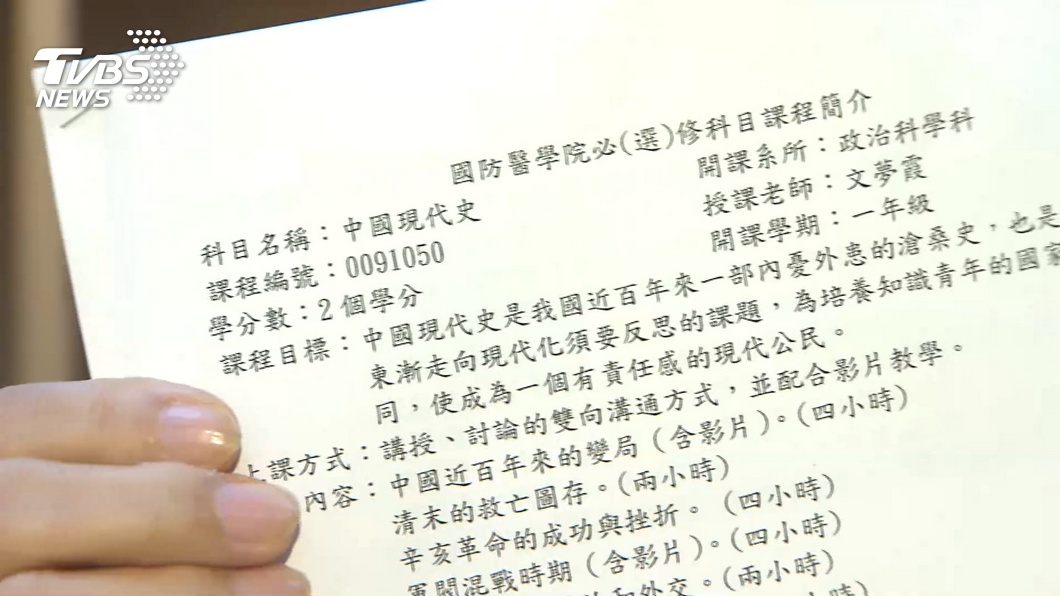 TVBS
NEWS
國防醫學院必(選)修科目課程簡介
科目名稱：中國現代史
開課系所：政治科學科
課程編號：0091050
授課老師：文夢霞
學分數：2個學分
開課學期：一年級
課程目標：中國現代史是我國近百年來一部內憂外患的滄桑史，也是
東漸走向現代化須要反思的課題，為培養知識青年的國家
同，使成為一個有責任感的現代公民。
上課方式：講授、討論的雙向溝通方式，並配合影片教學。
內容：中國近百年來的變局（含影片）。(四小時)
清末的救亡圖存。(兩小時)
辛亥革命的成功與挫折。（四小時）
軍閥混戰時期（含影片）。(四小時)
和外交。(兩小時)
時)